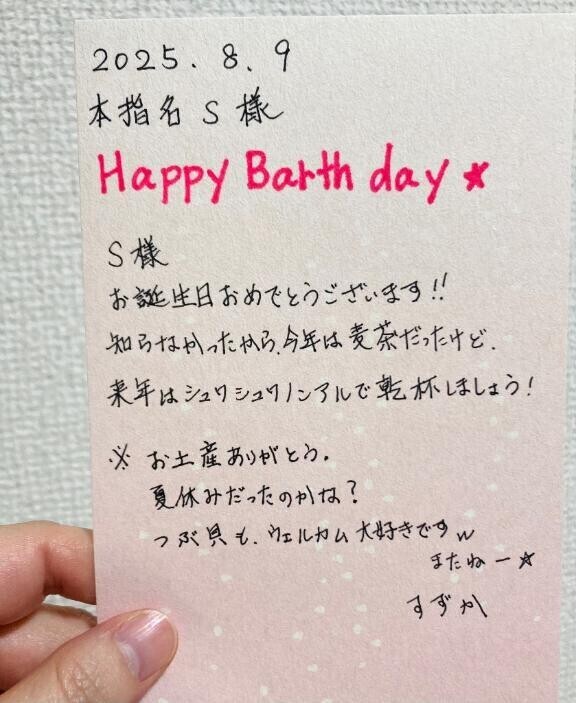 2025.8.9
本指名 S 様
Happy Barth day ☆
S 様
お誕生日おめでとうございます!!
知らなかったから、今年は麦茶だったけど、
来年はシュワシュワノンアルで乾杯しましょう!
※ お土産ありがとう。
夏休みだったのかな?
つぶ貝も、ウェルカム大好きですw
またねー☆
すずか